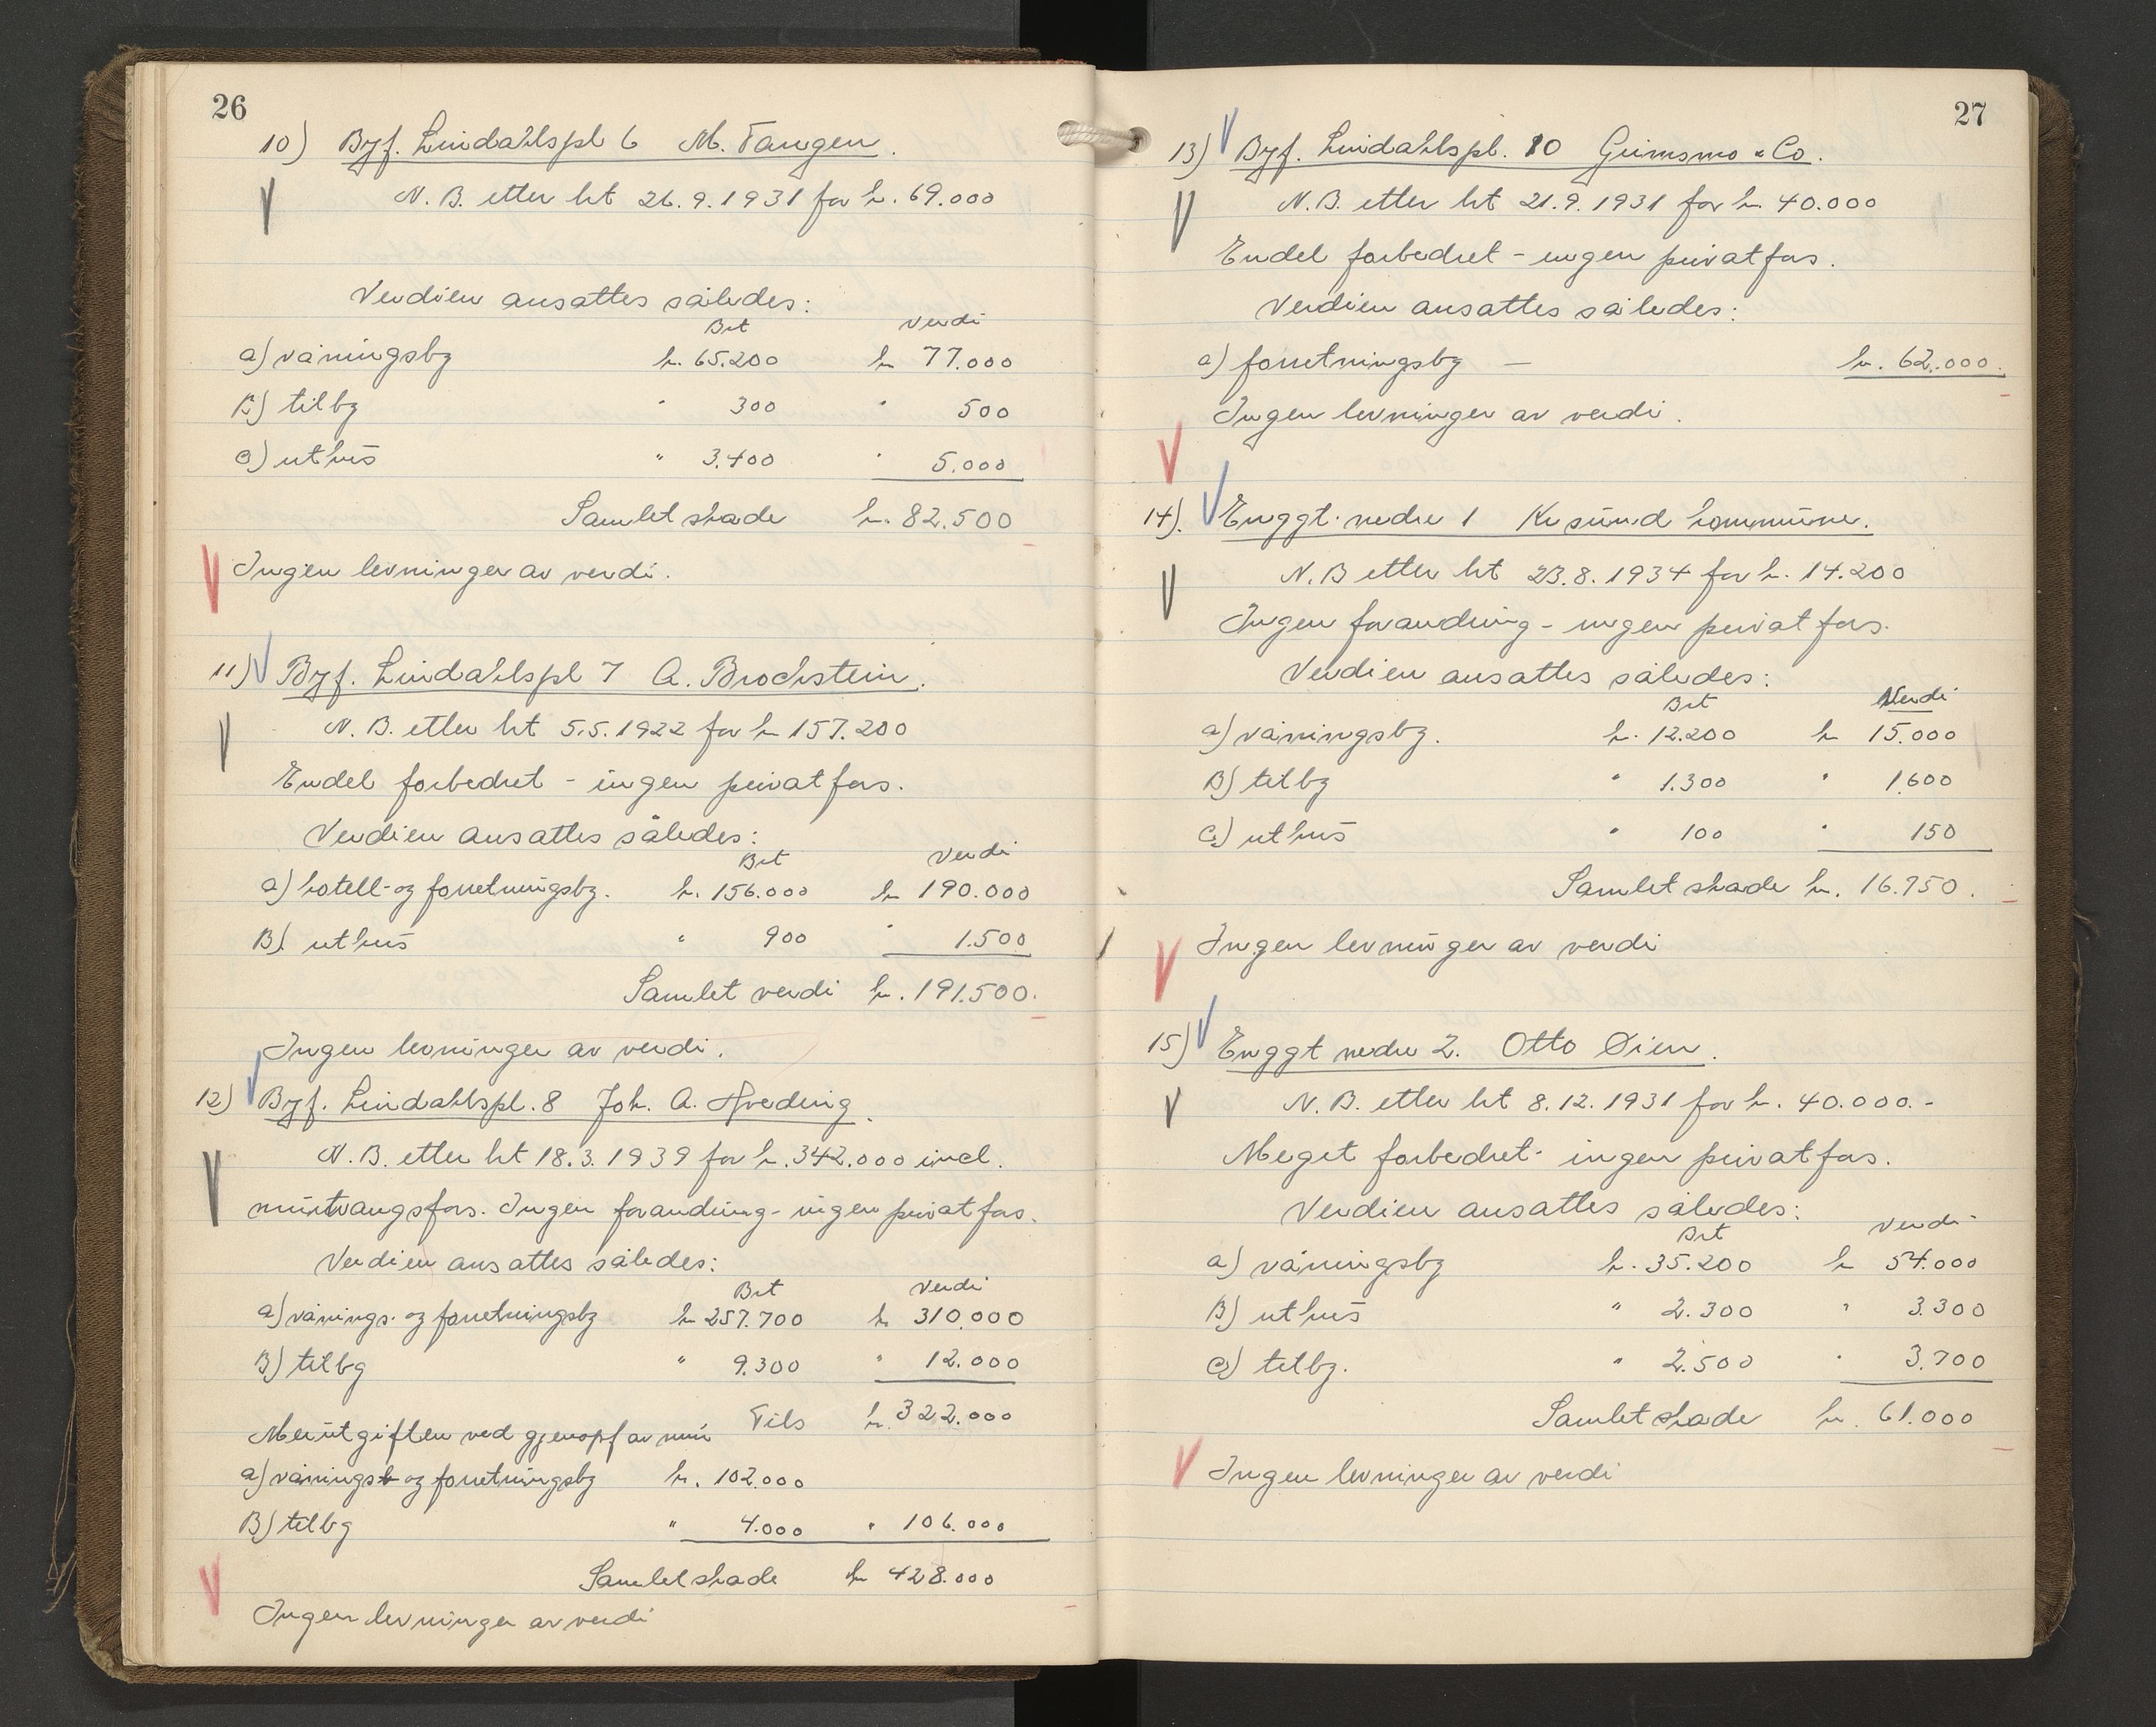 26
10) Byf. Lindahlspl 6 M. Tangen.
N. B. etter ht 26.9.1931 for kr. 69.000
Verdien ansattes således:
Brt Verdi
a) våningsbg kr. 65.200 kr 77.000
B) tilbg " 300 " 500
C) uthus " 3.400 " 5.000
Samlet skade kr. 82.500
Ingen levninger av verdi.
11) Byf. Lindahlspl 7 A. Brochstein.
N. B. etter ht 5.5.1922 for kr 157.200
Endel forbedret - ingen privatfors.
Verdien ansattes således:
Brt Verdi
a) hotell- og forretningsbg. kr. 156.000 kr 190.000
B). uthus " 900 " 1.500
Samlet verdi kr. 191.500.
Ingen levninger av verdi.
12) Byf. Lindahlspl. 8 Joh. A. Hveding.
N. B. etter ht 18.3.1939 for kr. 342.000 incl.
murtvangsfors. Ingen forandring - ingen privatfors.
Verdien ansattes således:
Brt Verdi
a) vånings- og forretningsbg kr 257.700 kr 310.000
B) tilbg " 9.300 " 12.000
Tils kr. 322.000
Merutgiften ved gjenopf av mur
a) vånings- og forretningsbg kr. 102.000
B) tilbg " 4.000 " 106.000
Samlet skade kr 428.000
Ingen levninger av verdi
27
13) Byf. Lindahlspl. 10 Grimsmo & Co.
N. B. etter ht 21.9.1931 for kr. 40.000
Endel forbedret - ingen privatfors.
Verdien ansattes således:
a) forretningsbg — kr. 62.000.
Ingen levninger av verdi.
14). Enggt. nedre 1 Kr sund kommune.
N. B etter ht 23.8.1934 for kr. 14.200
Ingen forandring - ingen privatfors.
Verdien ansattes således:
Brt Verdi
a) våningsbg. kr. 12.200 kr 15.000
B) tilbg " 1.300 " 1.600
C) uthus " 100 " 150
Samlet skade kr. 16.750.
Ingen levninger av verdi
15) Enggt nedre 2. Otto Øien.
N. B. etter ht 8.12.1931 for kr. 40.000.-
Meget forbedret - ingen privatfors.
Verdien ansattes således:
Brt Verdi
a) våningsbg kr. 35.200 kr 54.000
B) uthus " 2.300 " 3.300
C) tilbg. " 2.500 " 3.700
Samlet skade kr. 61.000
Ingen levninger av verdi